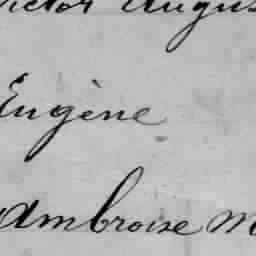 Victor Augus
Eugène
Ambroise M